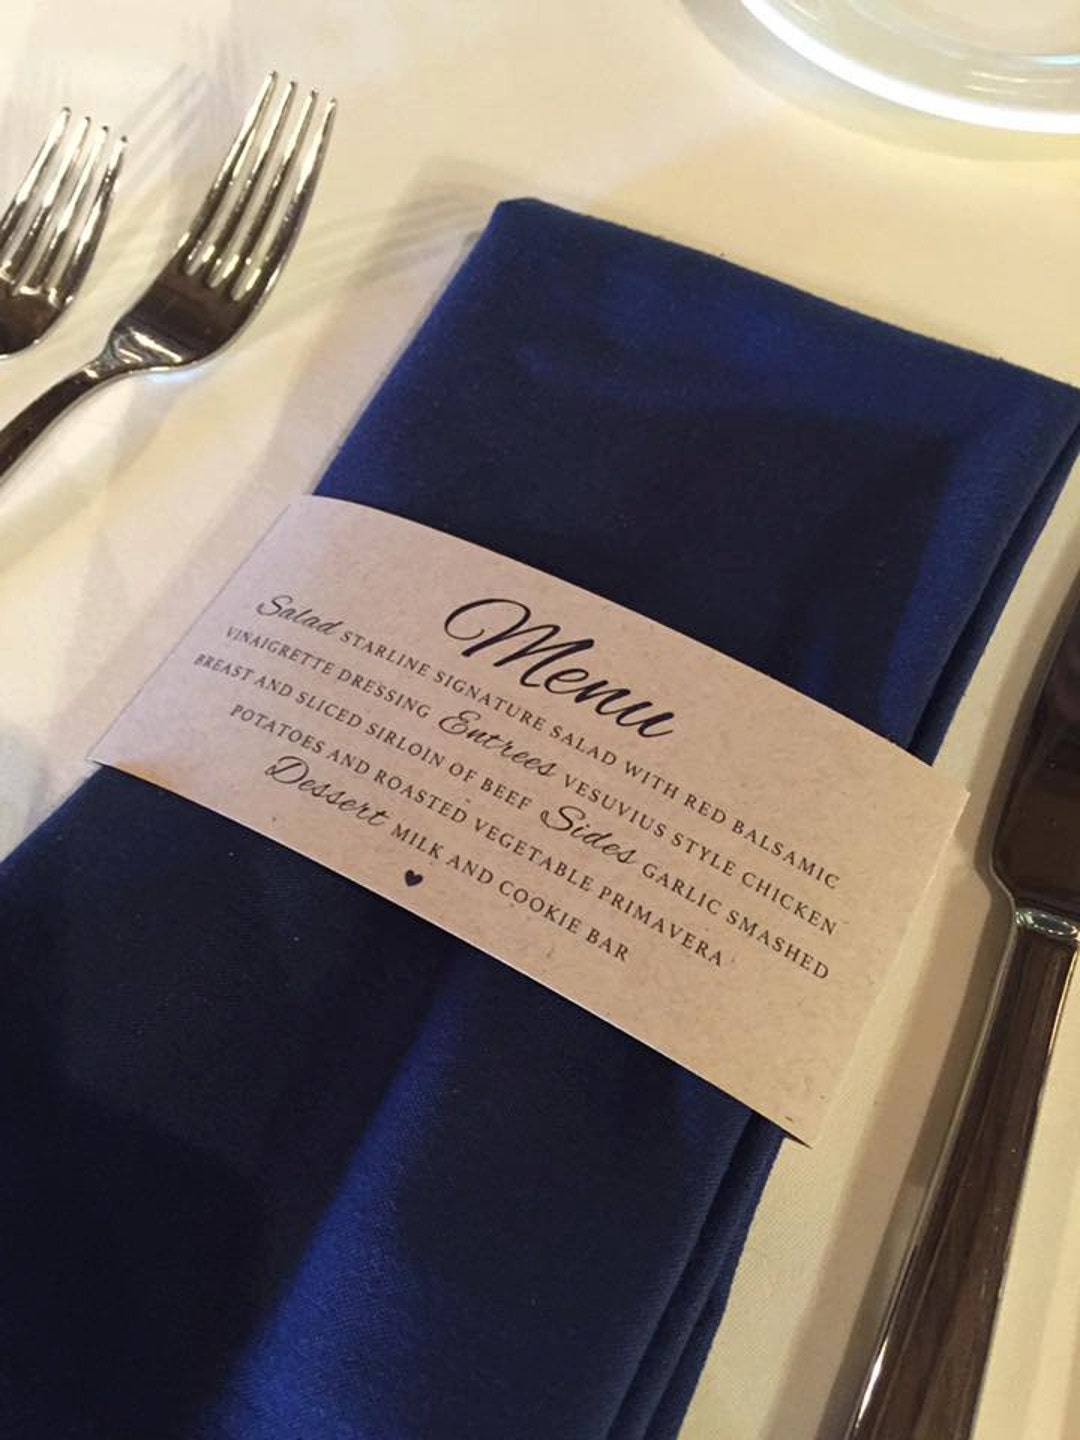 Menu
Salad STARLINE SIGNATURE SALAD WITH RED BALSAMIC
VINAIGRETTE DRESSING Entrees VESUVIUS STYLE CHICKEN
BREAST AND SLICED SIRLOIN OF BEEF Sides GARLIC SMASHED
POTATOES AND ROASTED VEGETABLE PRIMAVERA
Dessert MILK AND COOKIE BAR